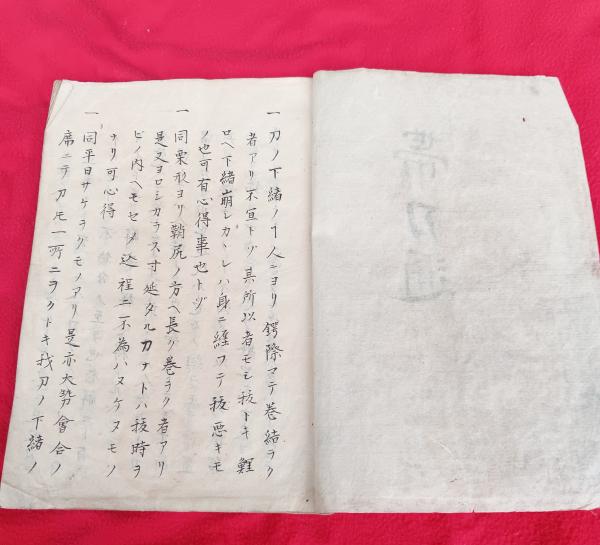 帯刀通
一 刀ノ下緒ノヿ人ニヨリ鍔際マテ巻結ヲク
者アリ不宜トゾ其所以者モシ抜トキ鯉
口ヘ下緒崩レカヽレハ身ニ経フテ抜悪キモ
ノ也可有心得事也トゾ
一 同栗形ヨリ鞘尻ノ方ヘ長ク巻ヲク者アリ
是又ヨロシカラス寸延タル刀ナトハ抜時ヲ
ビノ内ヘモセメ込程ニ不為ハヌケヌモノ
ナリ可心得
一 同平日サケヲクモノアリ是亦大勢會合ノ
席ニテ刀モ一所ニヲクトキ我刀ノ下緒ノ